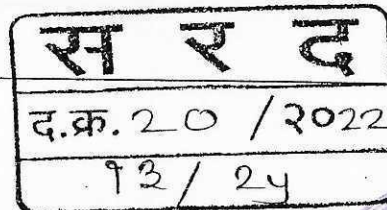 स र द
द.क्र. 20 / २022
१३ / २५